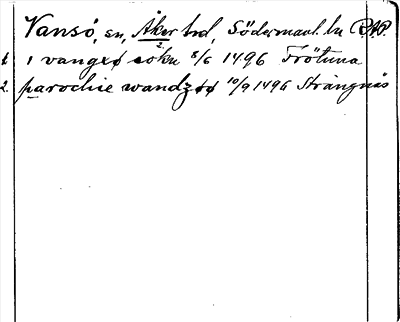 Vansö, sn, Åker hd, Södermanl. ln RAP.
1. i vangzø soku 8/6 1496 Frötuna
2. parochie wandzøø 10/9 1496 Strängnäs